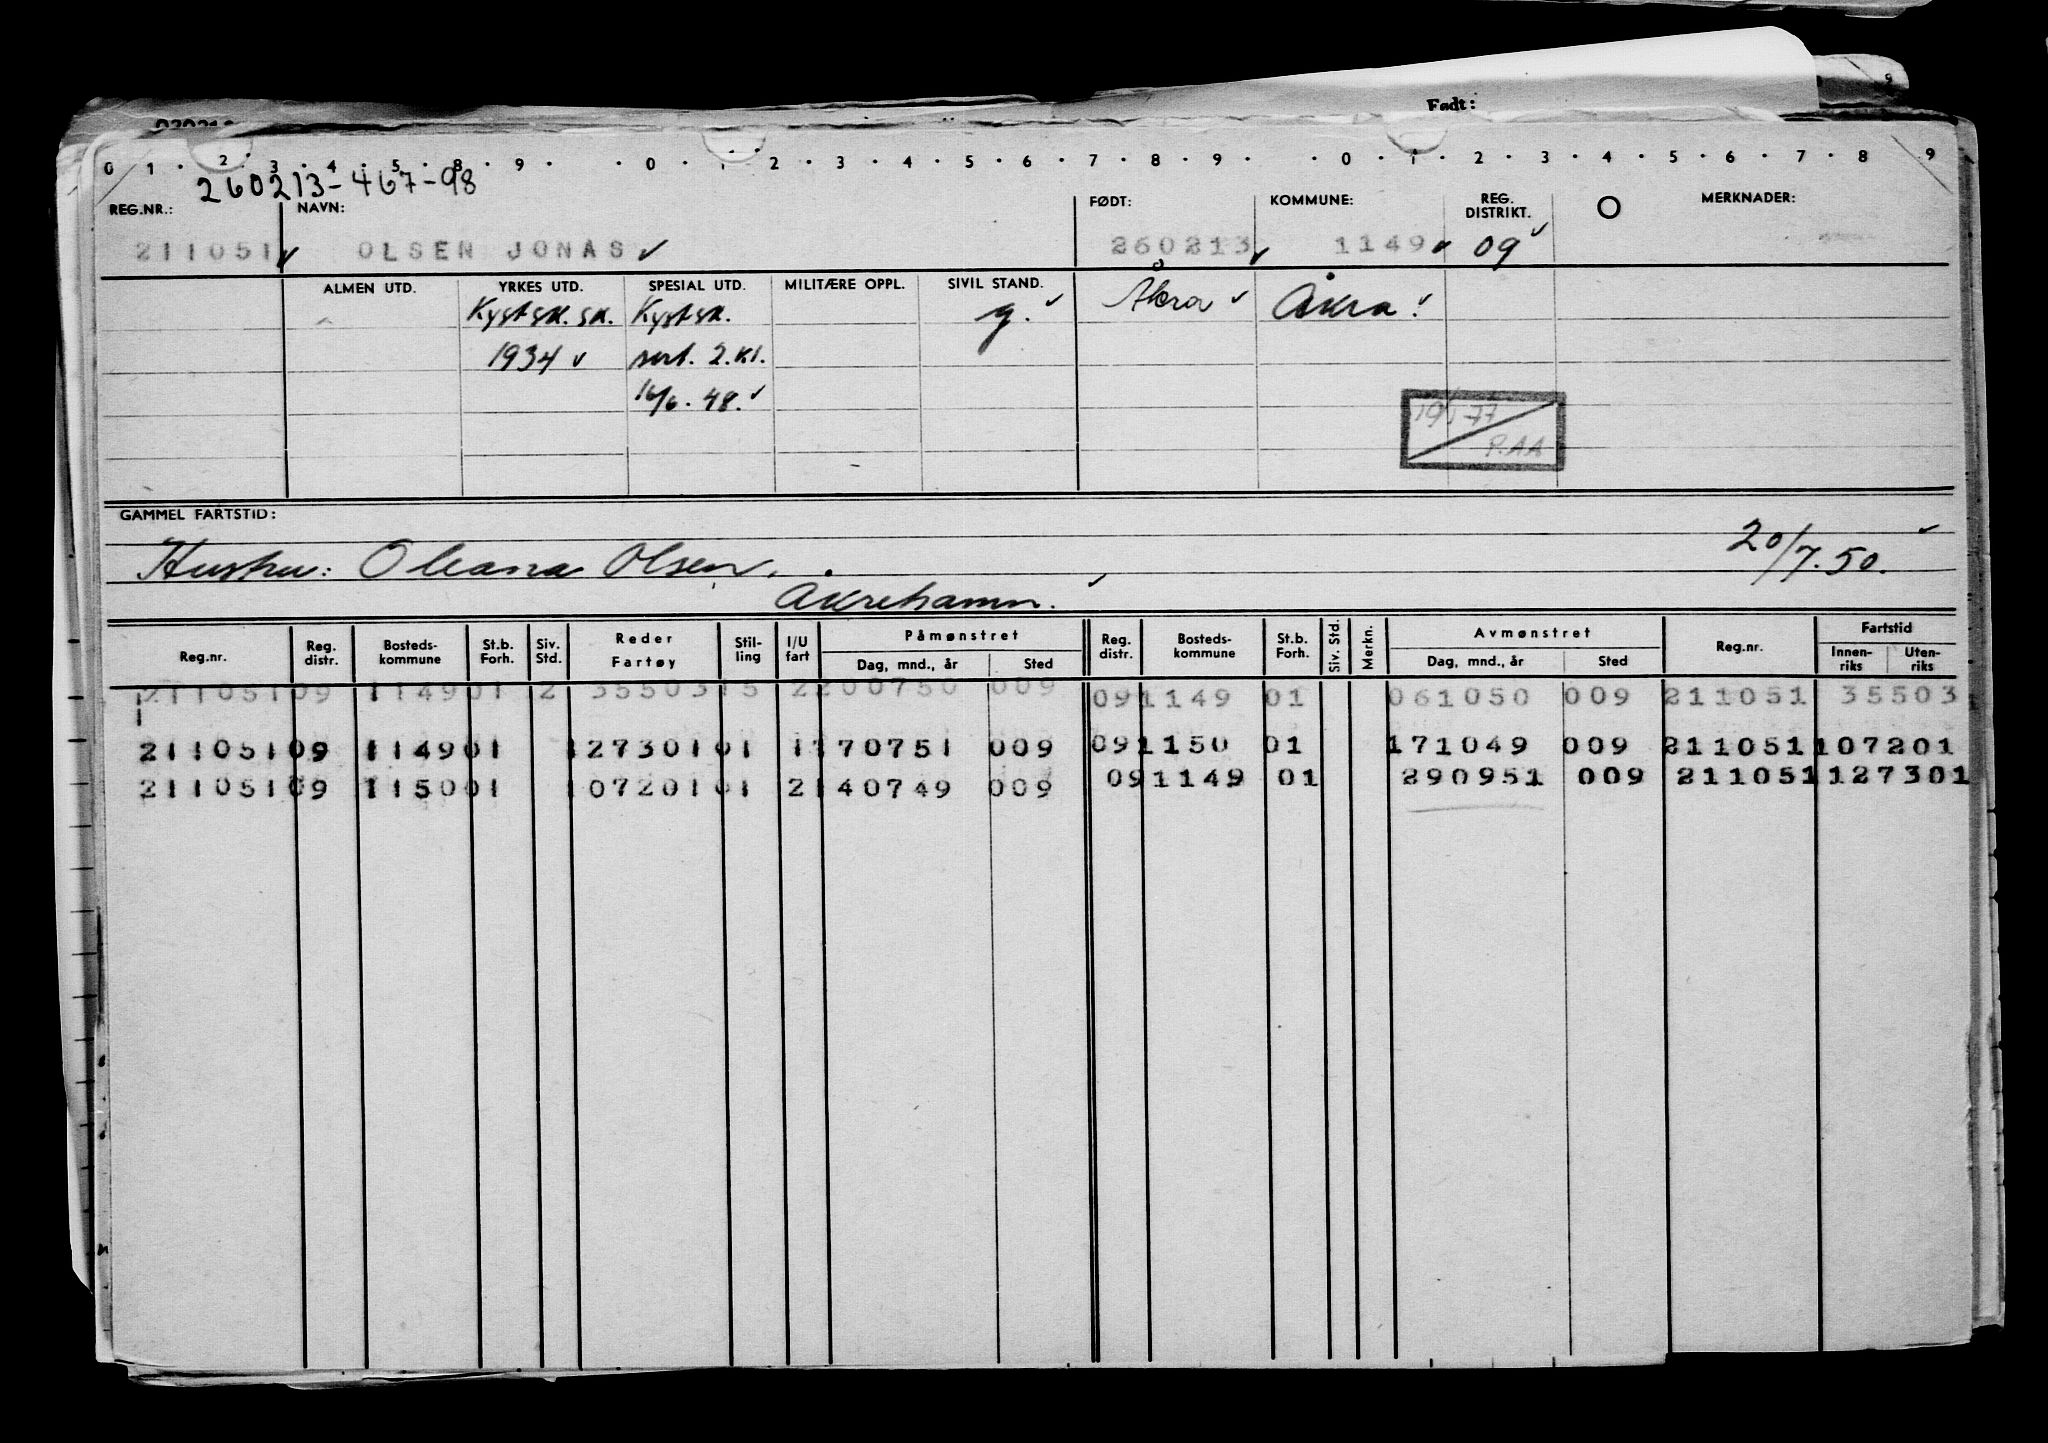 Født:
0 1 2 3 4 5 8 9 0 1 2 3 4 5 6 7 8 9 0 1 2 3 4 5 6 7 8 9
260213-467-98
REG.NR.: NAVN: FØDT: KOMMUNE: REG. DISTRIKT. MERKNADER:
211051 OLSEN JONAS 260213 1149 09
ALMEN UTD. YRKES UTD. SPESIAL UTD. MILITÆRE OPPL. SIVIL STAND.
Kystsk.sk. Kystsk. g. Åkra Åkra.
1934 sert. 2.kl.
16/6. 48.
19/1-77
P.AA
GAMMEL FARTSTID:
Hustru: Oleana Olsen, 20/7.50.
Åkrehamn.
Reg.nr. Reg. distr. Bosteds-kommune St.b. Forh. Siv. Std. Reder Fartøy Stil-ling I/U fart Påmønstret Dag, mnd., år Sted Reg. distr. Bosteds-kommune St.b. Forh. Siv. Std. Merkn. Avmønstret Dag, mnd., år Sted Reg.nr. Fartstid Innen-riks Uten-riks
211051 09 1149 01 2 35503 15 2 200750 009 09 1149 01 061050 009 211051 35503
211051 09 1149 01 127301 01 1 170751 009 09 1150 01 171049 009 211051 107201
211051 09 1150 01 107201 01 2 140749 009 09 1149 01 290951 009 211051 127301